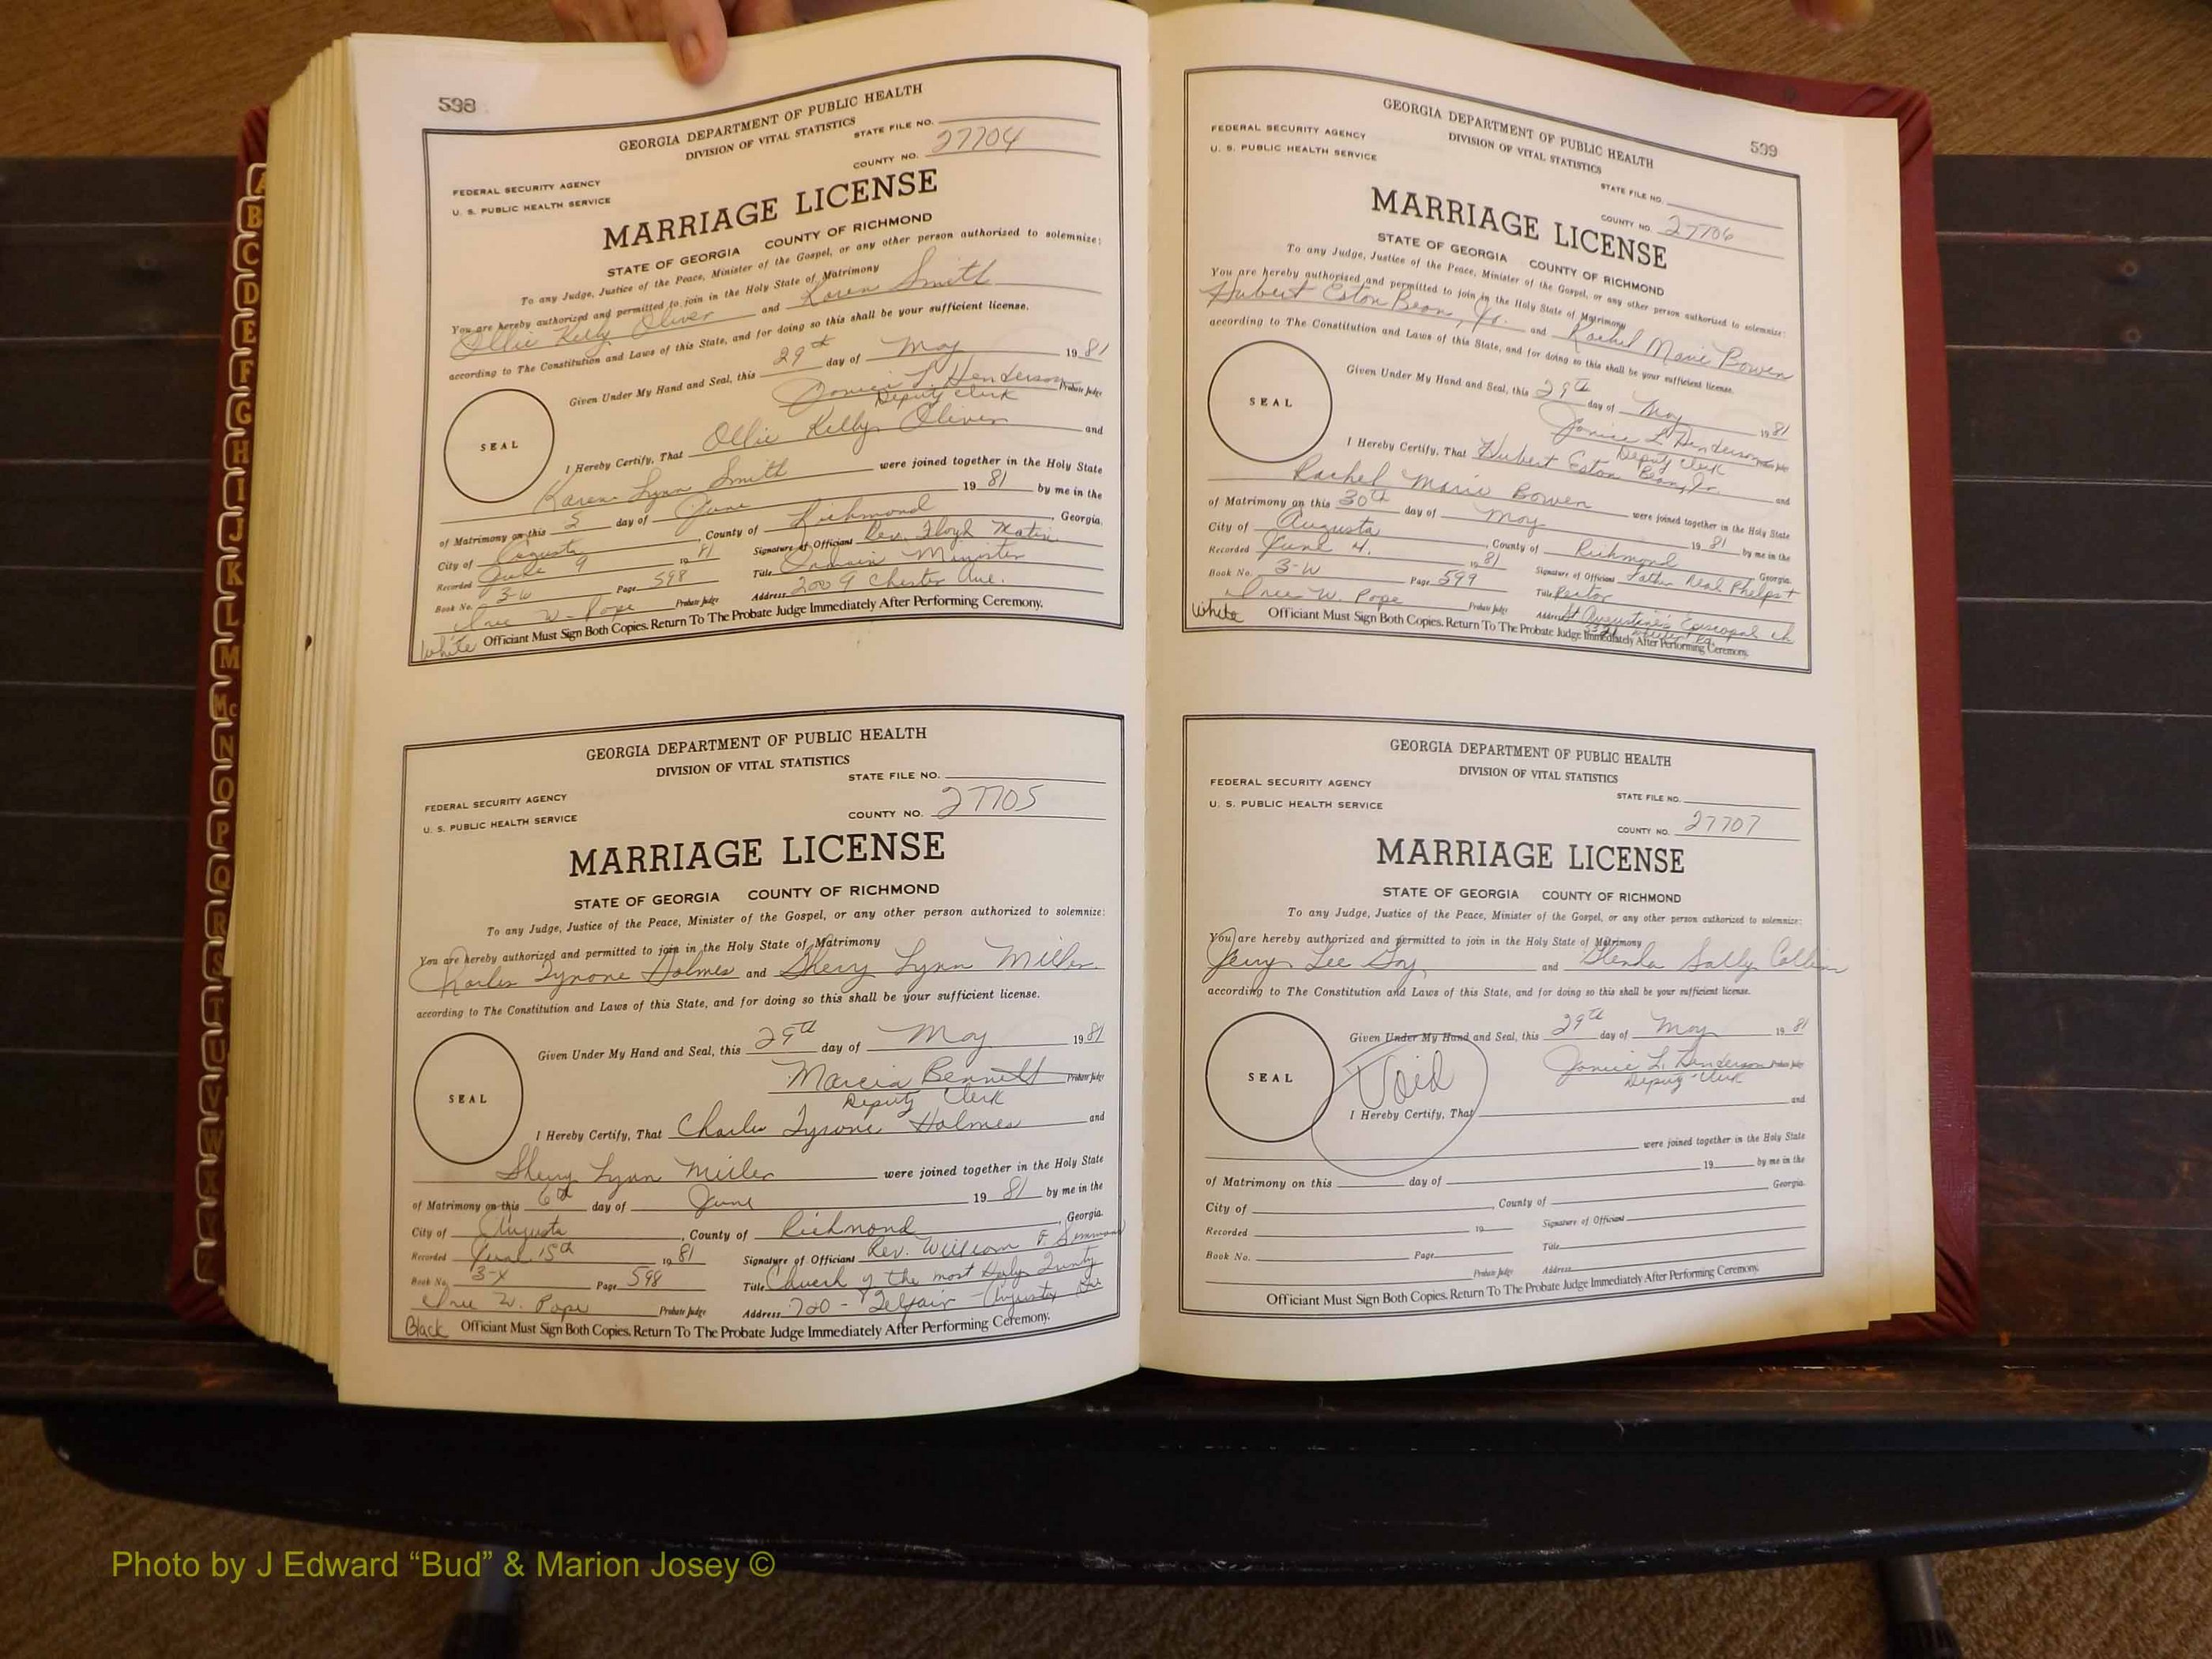 598
GEORGIA DEPARTMENT OF PUBLIC HEALTH
DIVISION OF VITAL STATISTICS
STATE FILE NO.
COUNTY NO. 27704
FEDERAL SECURITY AGENCY
U. S. PUBLIC HEALTH SERVICE
MARRIAGE LICENSE
STATE OF GEORGIA COUNTY OF RICHMOND
To any Judge, Justice of the Peace, Minister of the Gospel, or any other person authorized to solemnize:
You are hereby authorized and permitted to join in the Holy State of Matrimony
Ollie Kelly Oliver and Karen Smith
according to The Constitution and Laws of this State, and for doing so this shall be your sufficient license.
Given Under My Hand and Seal, this 29th day of May 19 81
Janice L Henderson Probate Judge
Deputy Clerk
SEAL
I Hereby Certify, That Ollie Kelly Oliver and
Karen Lynn Smith were joined together in the Holy State
of Matrimony on this 5 day of June 19 81 by me in the
City of Augusta, County of Richmond, Georgia.
Recorded June 9 19 81 Signature of Officiant Rev. Floyd
Book No. 3-W Page 598 Title Minister
W. Pope Probate Judge Address 2009 Chester Ave.
White Officiant Must Sign Both Copies. Return To The Probate Judge Immediately After Performing Ceremony.
GEORGIA DEPARTMENT OF PUBLIC HEALTH
DIVISION OF VITAL STATISTICS
STATE FILE NO.
FEDERAL SECURITY AGENCY
U. S. PUBLIC HEALTH SERVICE
COUNTY NO. 27705
MARRIAGE LICENSE
STATE OF GEORGIA COUNTY OF RICHMOND
To any Judge, Justice of the Peace, Minister of the Gospel, or any other person authorized to solemnize:
You are hereby authorized and permitted to join in the Holy State of Matrimony
Charles Tyrone Holmes and Sherry Lynn Miller
according to The Constitution and Laws of this State, and for doing so this shall be your sufficient license.
Given Under My Hand and Seal, this 29th day of May 19 81
Marcia Bennett Probate Judge
Deputy Clerk
SEAL
I Hereby Certify, That Charles Tyrone Holmes and
Sherry Lynn Miller were joined together in the Holy State
of Matrimony on this 6th day of June 19 81 by me in the
City of Augusta, County of Richmond, Georgia.
Recorded June 15th 19 81 Signature of Officiant Rev. William F.
Book No. 3-X Page 598 Title Church of the most Holy Trinity
W. Pope Probate Judge Address 720 - Telfair - Augusta Ga
Black Officiant Must Sign Both Copies. Return To The Probate Judge Immediately After Performing Ceremony.
599
GEORGIA DEPARTMENT OF PUBLIC HEALTH
DIVISION OF VITAL STATISTICS
FEDERAL SECURITY AGENCY
U. S. PUBLIC HEALTH SERVICE
STATE FILE NO.
COUNTY NO. 27706
MARRIAGE LICENSE
STATE OF GEORGIA COUNTY OF RICHMOND
To any Judge, Justice of the Peace, Minister of the Gospel, or any other person authorized to solemnize:
You are hereby authorized and permitted to join in the Holy State of Matrimony
Hubert Eston Bean, Jr. and Rachel Marie Bowen
according to The Constitution and Laws of this State, and for doing so this shall be your sufficient license.
Given Under My Hand and Seal, this 29th day of May 19 81
Janice L Henderson Probate Judge
Deputy Clerk
SEAL
I Hereby Certify, That Hubert Eston Bean, Jr. and
Rachel Marie Bowen were joined together in the Holy State
of Matrimony on this 30th day of May 19 81 by me in the
City of Augusta, County of Richmond Georgia.
Recorded June 4, 19 81 Signature of Officiant Father Neal Phelps
Book No. 3-W Page 599 Title Rector
W. Pope Probate Judge Address St Augustine's Episcopal Ch
Wheeler Rd.
White Officiant Must Sign Both Copies. Return To The Probate Judge Immediately After Performing Ceremony.
GEORGIA DEPARTMENT OF PUBLIC HEALTH
DIVISION OF VITAL STATISTICS
FEDERAL SECURITY AGENCY
U. S. PUBLIC HEALTH SERVICE
STATE FILE NO.
COUNTY NO. 27707
MARRIAGE LICENSE
STATE OF GEORGIA COUNTY OF RICHMOND
To any Judge, Justice of the Peace, Minister of the Gospel, or any other person authorized to solemnize:
You are hereby authorized and permitted to join in the Holy State of Matrimony
Jerry Lee and Glenda Sally Collins
according to The Constitution and Laws of this State, and for doing so this shall be your sufficient license.
Given Under My Hand and Seal, this 29th day of May 19 81
Janice L. Henderson Probate Judge
Deputy Clerk
Void
SEAL
I Hereby Certify, That and
were joined together in the Holy State
of Matrimony on this day of 19 by me in the
City of , County of Georgia.
Recorded 19 Signature of Officiant
Book No. Page Title
Probate Judge Address
Officiant Must Sign Both Copies. Return To The Probate Judge Immediately After Performing Ceremony.
A
B
C
D
E
F
G
H
I
J
K
L
M
Mc
N
O
P
Q
R
S
T
U
V
W
Photo by J Edward “Bud” & Marion Josey ©